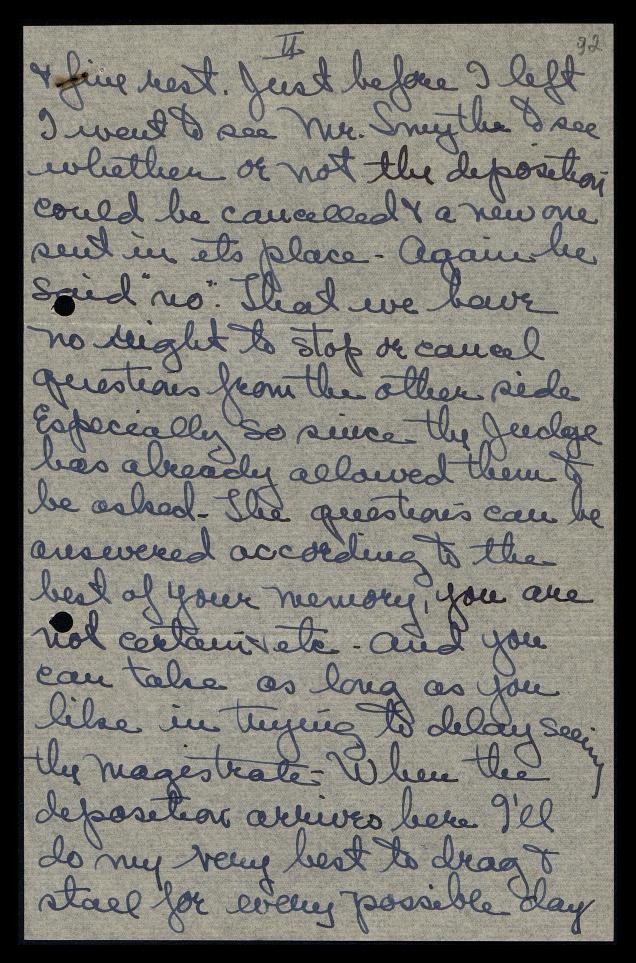 II
92
& fine rest. Just before I left
I went to see Mr. Smythe to see
whether or not the deposition
could be cancelled & a new one
sent in its place - Again he
said "no". That we have
no right to stop or cancel
questions from the other side
Especially so since the Judge
has already allowed them to
be asked - The questions can be
answered according to the
best of your memory, you are
not certain, etc - and you
can take as long as you
like in trying to delay seeing
the magistrate - When the
deposition arrives here I'll
do my very best to drag &
stall for every possible day